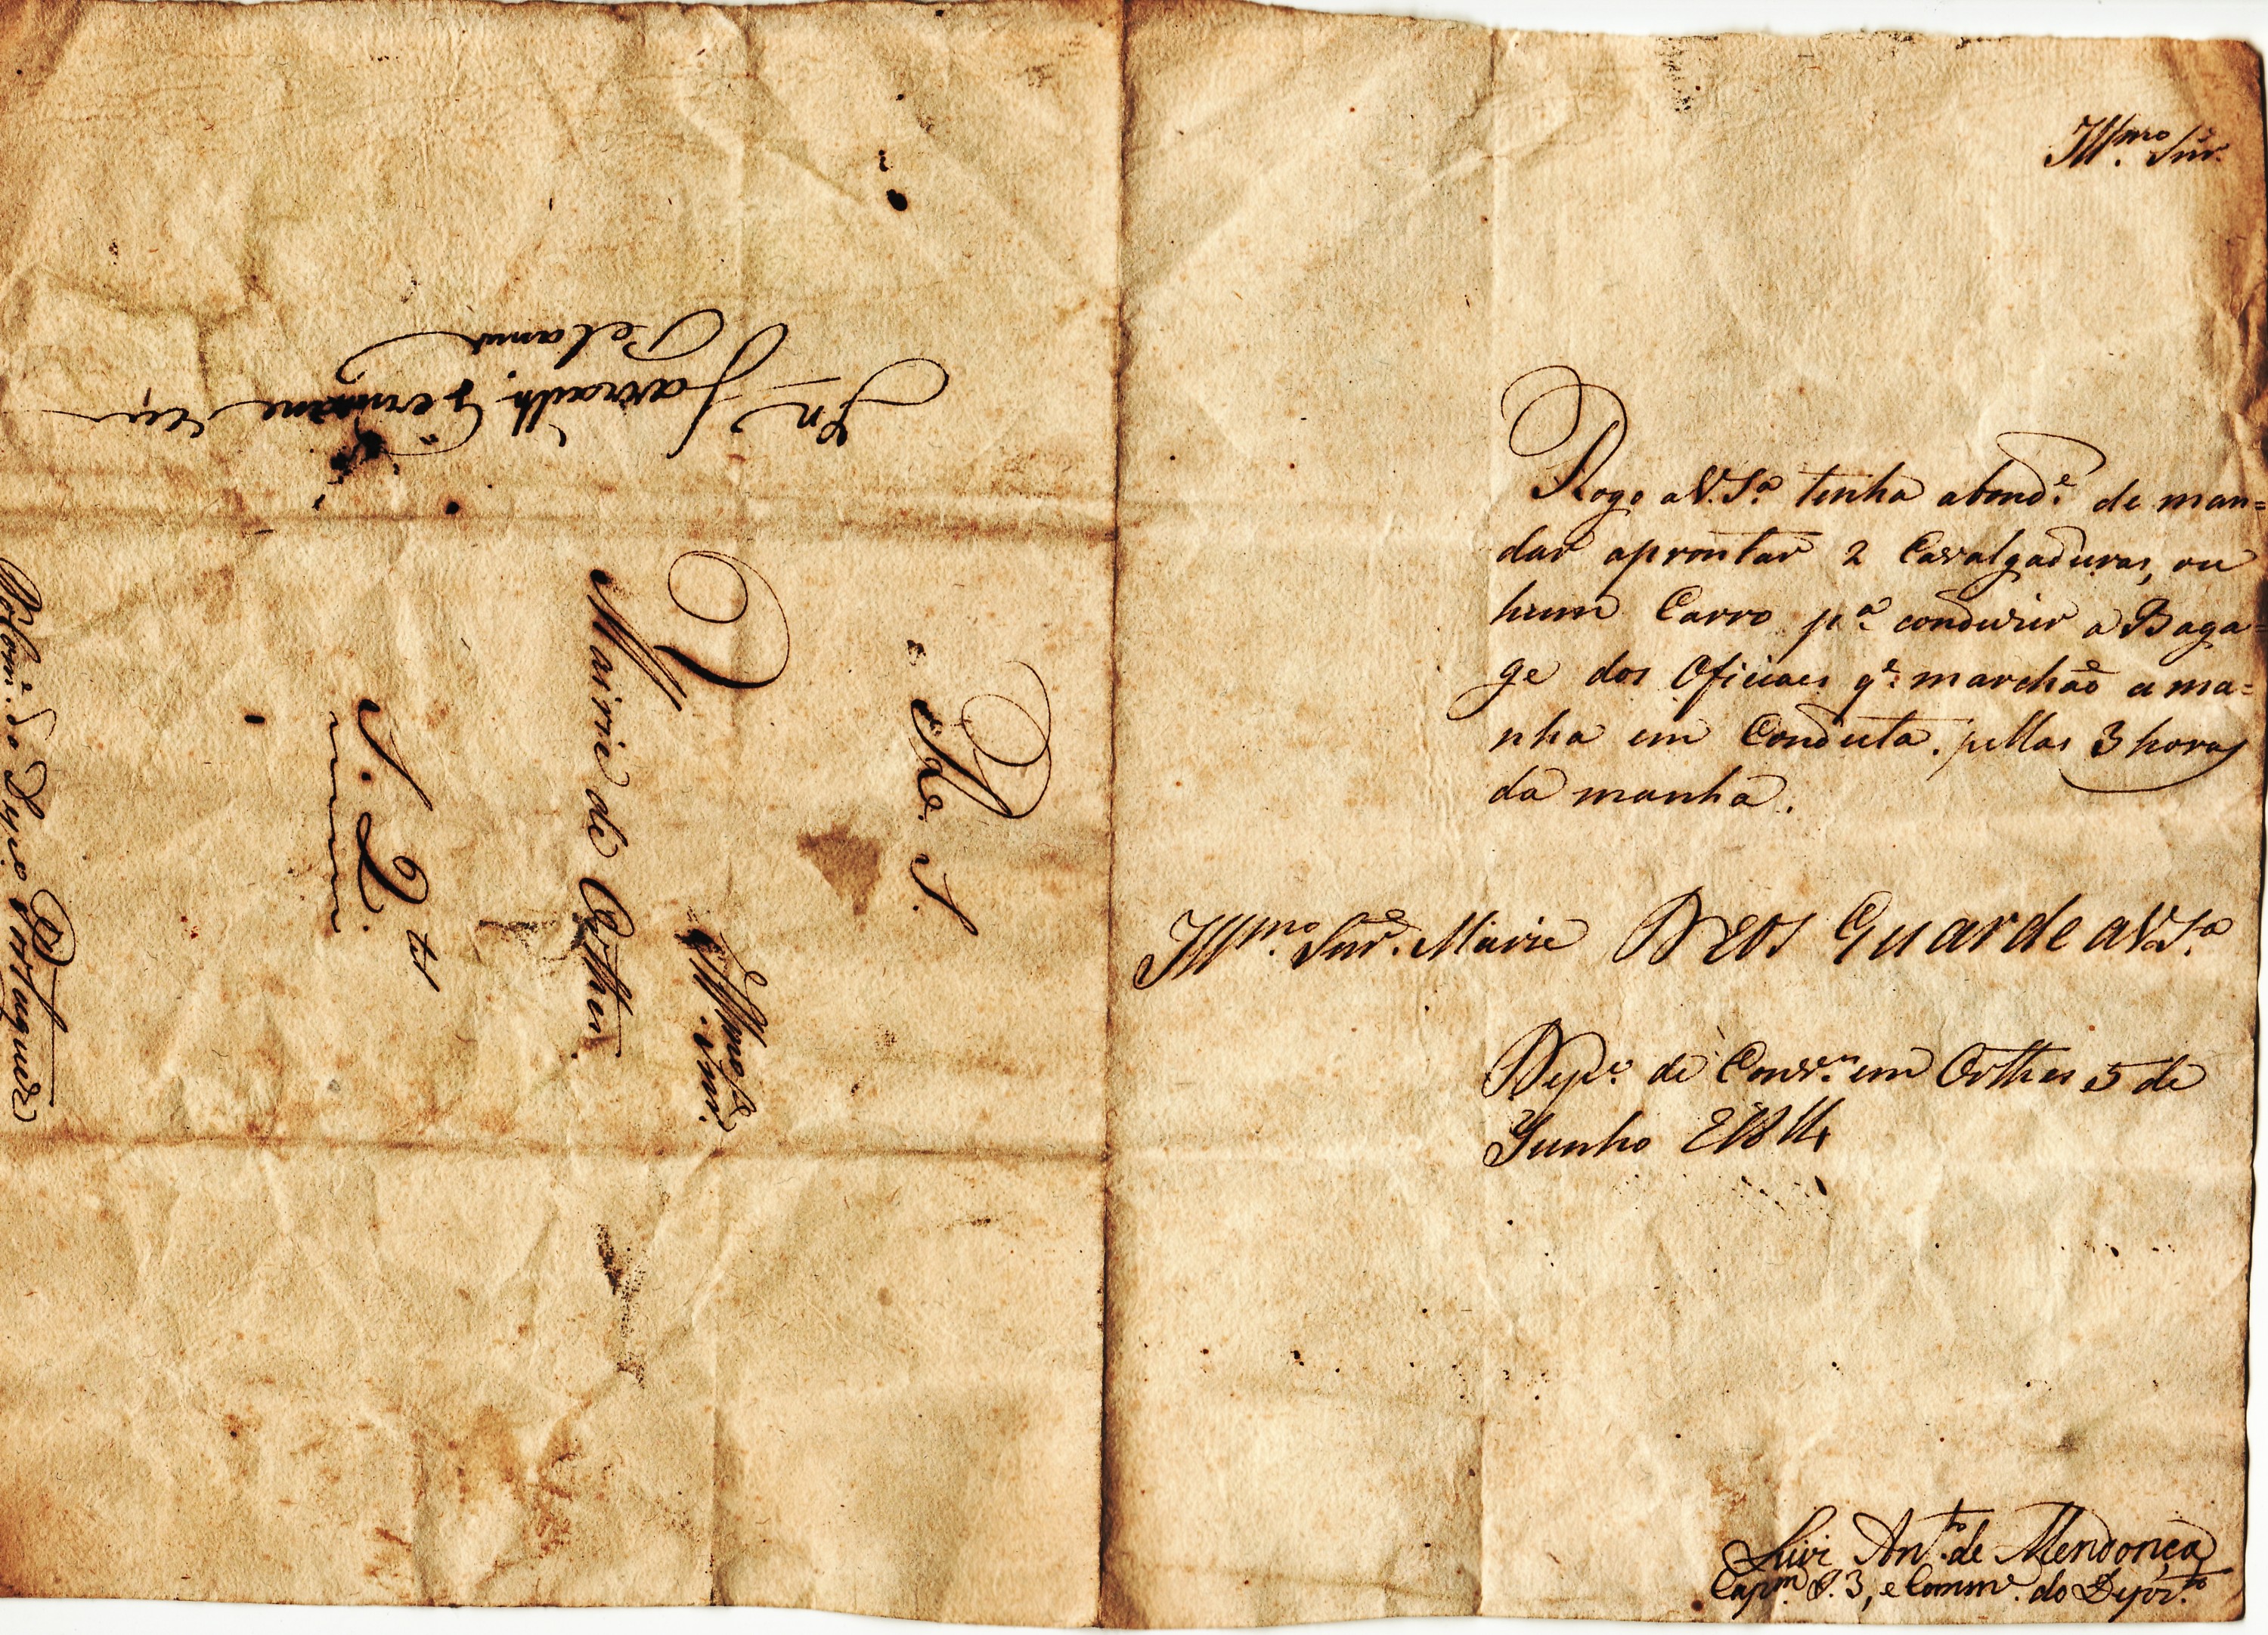 Illmo. Snr.
Rogo a V. Sa. tenha a bonde. de man=
dar aprontar 2 Cavalgaduras, ou
hum Carro pa. conduzir a Baga=
ge dos Oficiaes qe. marchão a ma=
nha em Conducta. pellas 3 horas
da manha.
Illmo. Snr. Maire Deos Guarde a V. Sa.
Depo. de Convn. em Orthes 5 de
Junho 1814
Luiz Anto. de Mendonça
Capm. 3, e Comme. do Deposto.
R. S.
Illmo. Snr.
Maire de Orthes
S. Dts
do Depo. Portuguez